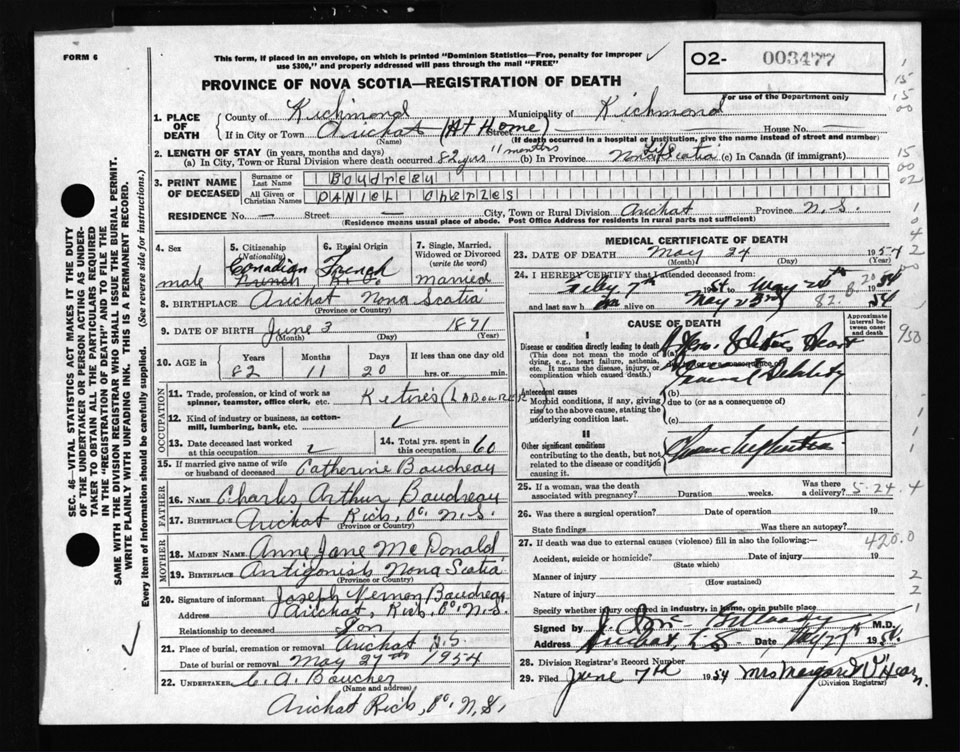 FORM 6
This form, if placed in an envelope, on which is printed "Dominion Statistics—Free, penalty for improper
use $300," and properly addressed will pass through the mail "FREE"
02- 003477
For use of the Department only
PROVINCE OF NOVA SCOTIA—REGISTRATION OF DEATH
1. PLACE OF DEATH
County of Richmond Municipality of Richmond
If in City or Town Arichat (At Home) Street — House No. —
(Name) (If death occurred in a hospital or institution, give the name instead of street and number)
2. LENGTH OF STAY (in years, months and days)
(a) In City, Town or Rural Division where death occurred 82 yrs 11 months (b) In Province Life Nova Scotia (c) In Canada (if immigrant)
3. PRINT NAME OF DECEASED
Surname or Last Name Boudreau
All Given or Christian Names DANIEL Charles
RESIDENCE No. — Street — City, Town or Rural Division Arichat Province N.S.
(Residence means usual place of abode. Post Office Address for residents in rural parts not sufficient)
4. Sex male
5. Citizenship (Nationality) Canadian French
6. Racial Origin French
7. Single, Married, Widowed or Divorced (write the word) Married
8. BIRTHPLACE Arichat Nova Scotia
(Province or Country)
9. DATE OF BIRTH June 3 1871
(Month) (Day) (Year)
10. AGE in Years 82 Months 11 Days 20 If less than one day old hrs. or min.
OCCUPATION
11. Trade, profession, or kind of work as spinner, teamster, office clerk, etc. Retired (LABOURER
12. Kind of industry or business, as cotton-mill, lumbering, bank, etc.
13. Date deceased last worked at this occupation
14. Total yrs. spent in this occupation 60
15. If married give name of wife or husband of deceased Catherine Boudreau
FATHER
16. NAME Charles Arthur Boudreau
17. BIRTHPLACE Arichat Rich, Co. N.S.
(Province or Country)
MOTHER
18. MAIDEN NAME Anne Jane McDonald
19. BIRTHPLACE Antigonish Nova Scotia
(Province or Country)
20. Signature of informant Joseph Vernon Boudreau
Address Arichat, Rich, Co. N.S.
Relationship to deceased Son
21. Place of burial, cremation or removal Arichat N.S.
Date of burial or removal May 27th 1954
22. UNDERTAKER C. A. Boucher
(Name and address)
Arichat Rich, Co. N.S.
MEDICAL CERTIFICATE OF DEATH
23. DATE OF DEATH May 24 1954
(Month) (Day) (Year)
24. I HEREBY CERTIFY that I attended deceased from:
May 24th
and last saw h im alive on May 23rd 54
82. 8. 20
CAUSE OF DEATH
Approximate interval between onset and death
I
Disease or condition directly leading to death (a) Heart
(This does not mean the mode of dying, e.g., heart failure, asthenia, etc. It means the disease, injury, or complication which caused death.)
General Debility
Antecedent causes
Morbid conditions, if any, giving rise to the above cause, stating the underlying condition last.
(b)
due to (or as a consequence of)
(c)
II
Other significant conditions
contributing to the death, but not related to the disease or condition causing it.
25. If a woman, was the death associated with pregnancy? Duration weeks. Was there a delivery? 5-24
26. Was there a surgical operation? Date of operation 19
State findings Was there an autopsy?
27. If death was due to external causes (violence) fill in also the following:—
420.0
Accident, suicide or homicide? Date of injury 19
(State which)
Manner of injury
(How sustained)
Nature of injury
Specify whether injury occurred in industry, in home, or in public place
Signed by M.D.
Address Arichat, Date May 27th 1954.
28. Division Registrar's Record Number
29. Filed June 7th 1954 Mrs Margaret
(Division Registrar)
SEC. 46—VITAL STATISTICS ACT MAKES IT THE DUTY
OF THE UNDERTAKER OR PERSON ACTING AS UNDER-
TAKER TO OBTAIN ALL THE PARTICULARS REQUIRED
IN THE "REGISTRATION OF DEATH" AND TO FILE THE
SAME WITH THE DIVISION REGISTRAR WHO SHALL ISSUE THE BURIAL PERMIT.
WRITE PLAINLY WITH UNFADING INK. THIS IS A PERMANENT RECORD.
Every item of information should be carefully supplied. (See reverse side for instructions.)
1
15
15
00
15
00
02
1
0
4
2
0
950
1
1
1
4
2
2
1